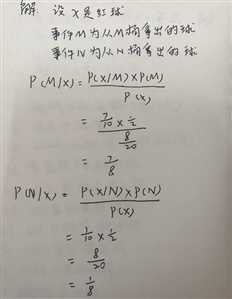 解: 设 X 是红球
事件M为从M桶拿出的球
事件N为从N桶拿出的球
P(M/X) = P(X/M) × P(M) / P(X)
= 7/10 × 1/2 / 8/20
= 7/8
P(N/X) = P(X/N) × P(N) / P(X)
= 1/10 × 1/2
= 8/20
= 1/8